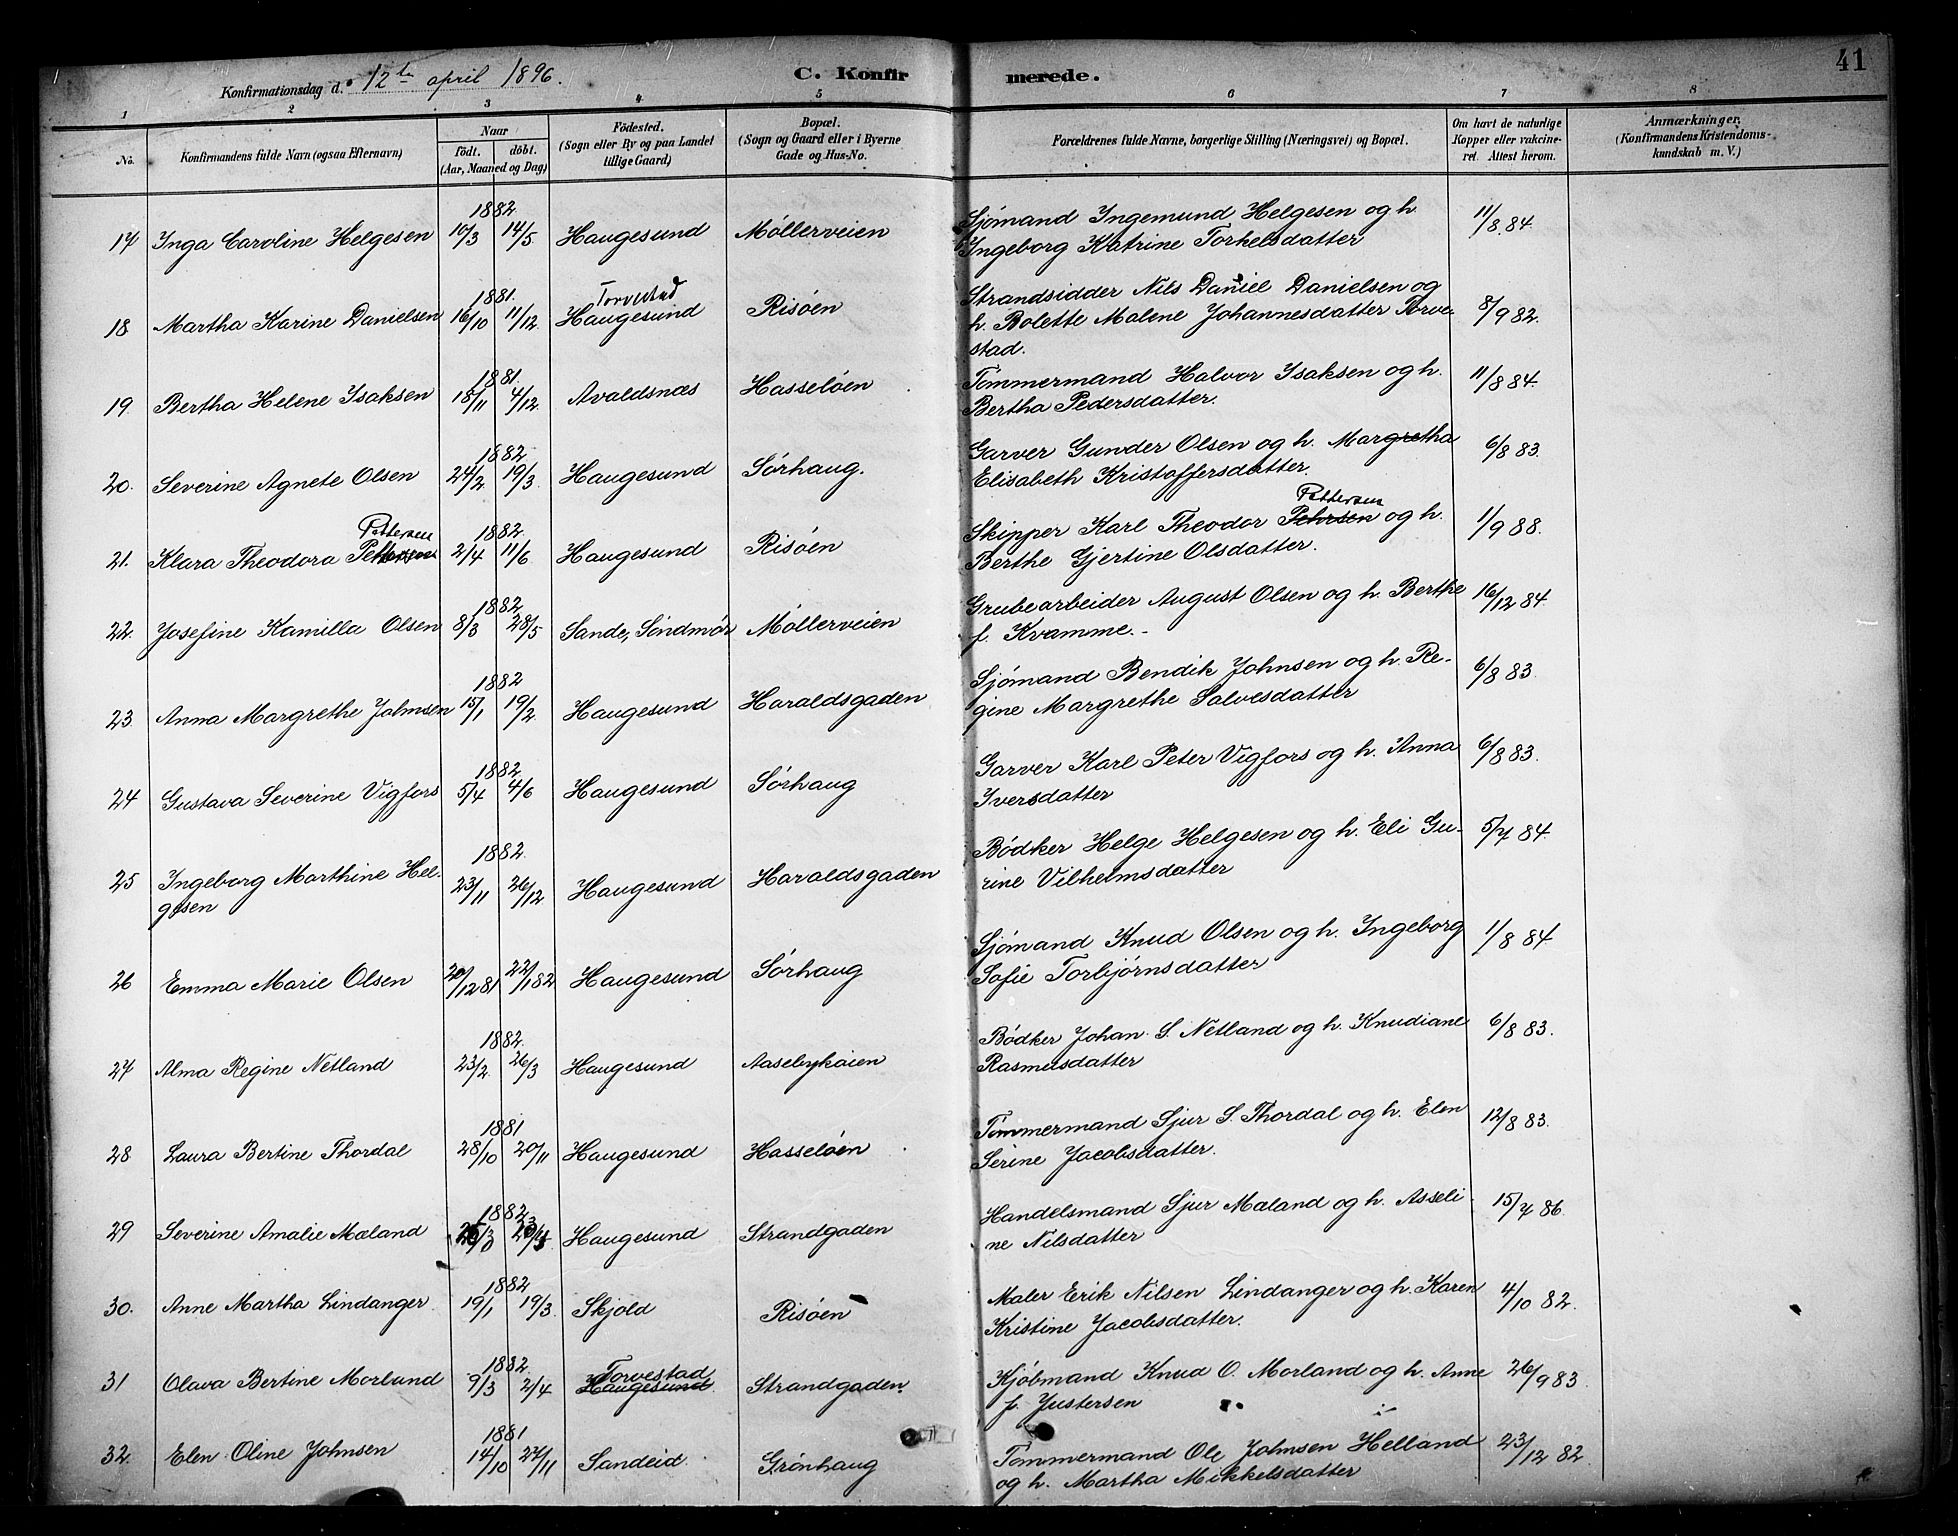 41
Konfirmationsdag d. 12te april 1896.
C. Konfirmerede.
1 2 3 4 5 6 7 8
No. Konfirmandens fulde Navn (ogsaa Efternavn) Naar födt. döbt. (Aar, Maaned og Dag) Födested. (Sogn eller By og paa Landet tillige Gaard) Bopæl. (Sogn og Gaard eller i Byerne Gade og Hus-No. Forældrenes fulde Navne, borgerlige Stilling (Næringsvei) og Bopæl. Om havt de naturlige Kopper eller vakcineret. Attest herom. Anmærkninger. (Konfirmandens Kristendomskundskab m. V.)
1882
17 Inga Caroline Helgesen 10/3 14/5 Haugesund Møllerveien Sjømand Ingemund Helgesen og h. 11/8.84.
Ingeborg Katrine Torkelsdatter
1881. Torvestad
18 Martha Karine Danielsen 16/10 11/12 Haugesund Risöen Strandsidder Nils Daniel Danielsen og 8/9 82.
h. Bolette Malene Johannesdatter Torve-
stad.
1881.
19. Bertha Helene Isaksen 18/11 4/12. Avaldsnæs Hasselöen Tömmermand Halvor Isaksen og h. 11/8 84.
Bertha Pedersdatter.
1882.
20. Severine Agnete Olsen 24/2 19/3. Haugesund Sörhaug. Garver Gunder Olsen og h. Margretha 6/8 83.
Elisabeth Kristoffersdatter.
Pettersen 1882 Pettersen
21. Klara Theodora Pettersen 2/4 11/6. Haugesund Risöen Skipper Karl Theodor Pehrsen og h. 1/9 88.
Berthe Gjertine Olsdatter.
1882
22. Josefine Kamilla Olsen 8/3 28/5 Sande, Söndmör Møllerveien Grubearbeider August Olsen og h. Berthe 16/12 84.
f. Kvamme.-
1882
23. Anna Margrethe Johnsen 15/1 19/2 Haugesund Haraldsgaden Sjømand Bendik Johnsen og h. Re- 6/8 83.
gine Margrethe Salvesdatter
1882
24 Gustava Severine Vigfors 5/4 4/6 Haugesund Sörhaug Garver Karl Peter Vigfors og h. Anna 6/8 83.
Iversdatter
1882.
25 Ingeborg Marthine Hel- 23/11 26/12 Haugesund Haraldsgaden Bödker Helge Helgesen og h. Eli Gu- 5/7 84.
gesen rine Vilhelmsdatter
26 Emma Marie Olsen 20/12 81 22/1 82 Haugesund Sörhaug Sjømand Knud Olsen og h. Ingeborg 1/8 84
Sofie Torbjørnsdatter
1882.
27 Alma Regine Netland 23/2 26/3 Haugesund Aasebykaien Bödker Johan S. Netland og h. Knudiane 6/8 83.
Rasmusdatter
1881
28 Laura Bertine Thordal 28/10 20/11 Haugesund Hasselöen Tömmermand Sjur S. Thordal og h. Elen 12/8 83.
Serine Jacobsdatter.
1882
29 Severine Amalie Maland Haugesund Strandgaden Handelsmand Sjur Maland og h. Asseli- 15/7 86.
ne Nilsdatter
1882
30. Anne Martha Lindanger 19/1 19/3. Skjold Risöen Maler Erik Nilsen Lindanger og h. Karen 4/10 82.
Kristine Jacobsdatter.
1882. Torvestad
31 Olava Bertine Morlund 9/3 2/4 Haugesund Strandgaden. Kjöbmand Knud O. Morland og h. Anne 26/9 83.
f. Justersen
1881
32. Elen Oline Johnsen 14/10 27/11 Sandeid. Grönhaug Tömmermand Ole Johnsen Helland 23/12 82.
og h. Martha Mikkelsdatter